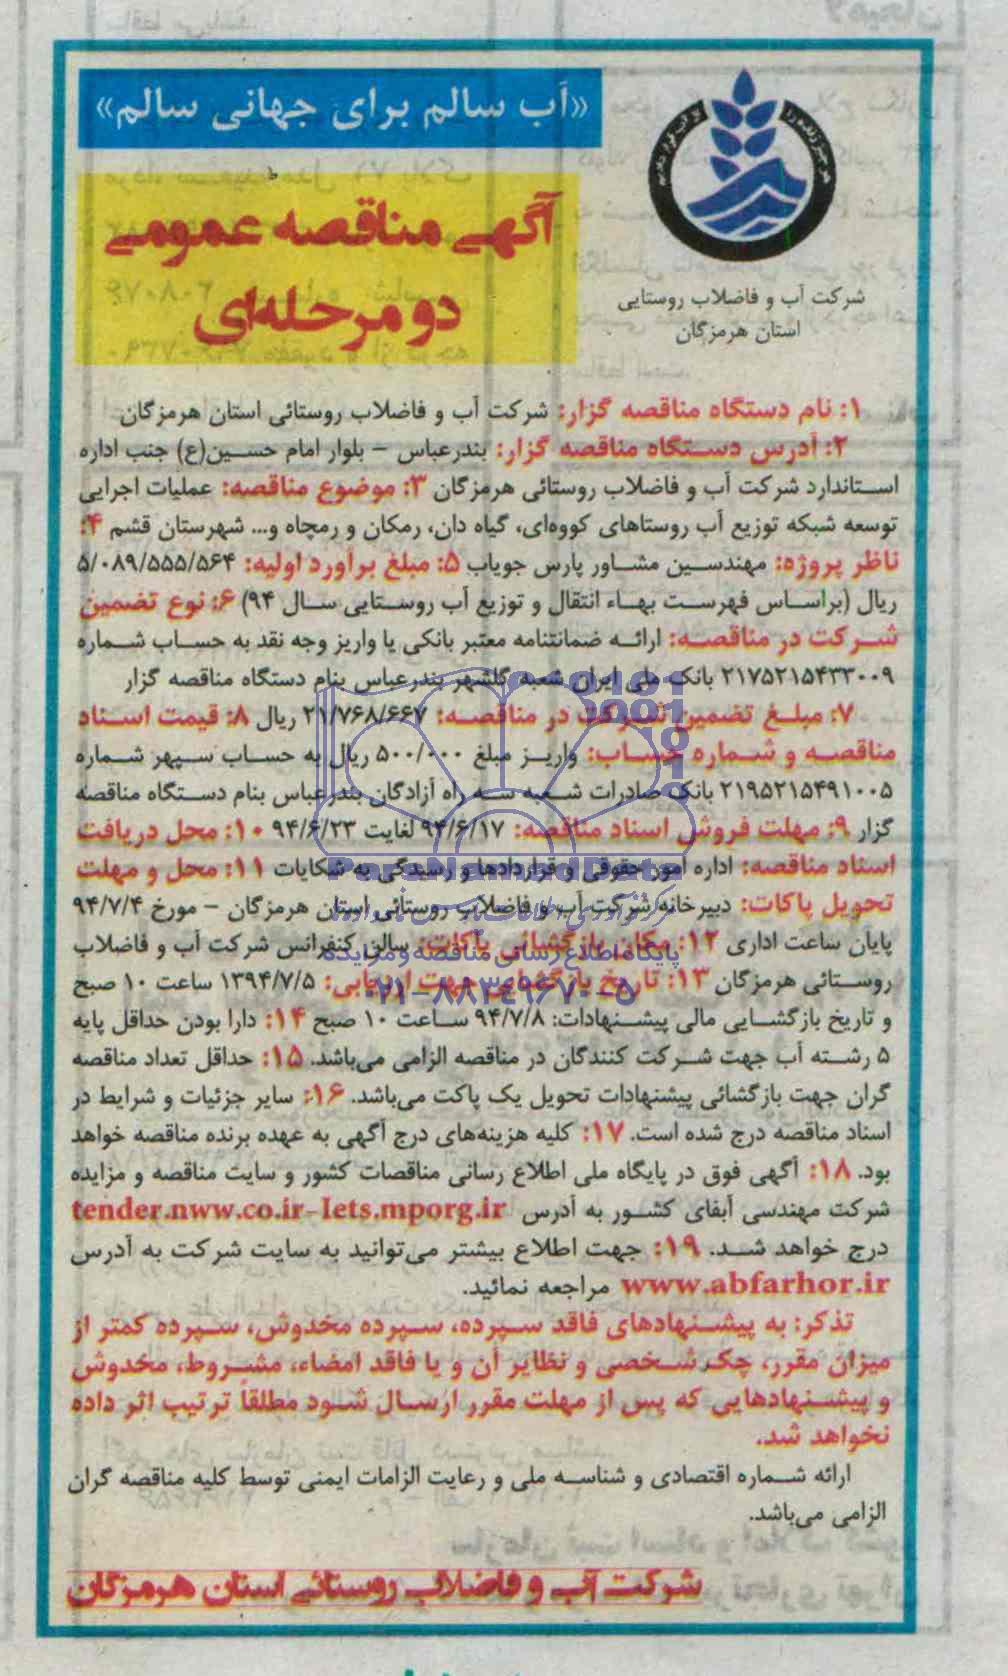 «آب سالم برای جهانی سالم»
هر چیز زنده را از آب قرار دادیم
شرکت آب و فاضلاب روستایی
استان هرمزگان
آگهی مناقصه عمومی
دو مرحله‌ای
۱: نام دستگاه مناقصه گزار: شرکت آب و فاضلاب روستائی استان هرمزگان
۲: آدرس دستگاه مناقصه گزار: بندرعباس – بلوار امام حسین(ع) جنب اداره
استاندارد شرکت آب و فاضلاب روستائی هرمزگان ۳: موضوع مناقصه: عملیات اجرایی
توسعه شبکه توزیع آب روستاهای کووه‌ای، گیاه دان، رمکان و رمچاه و... شهرستان قشم ۴:
ناظر پروژه: مهندسین مشاور پارس جویاب ۵: مبلغ برآورد اولیه: ۵/۰۸۹/۵۵۵/۵۶۴
ریال (براساس فهرست بهاء انتقال و توزیع آب روستایی سال ۹۴) ۶: نوع تضمین
شرکت در مناقصه: ارائه ضمانتنامه معتبر بانکی یا واریز وجه نقد به حساب شماره
۲۱۷۵۲۱۵۴۳۳۰۰۹ بانک ملی ایران شعبه گلشهر بندرعباس بنام دستگاه مناقصه گزار
۷: مبلغ تضمین شرکت در مناقصه: ۲۱/۷۶۸/۶۶۷ ریال ۸: قیمت اسناد
مناقصه و شماره حساب: واریز مبلغ ۵۰۰/۰۰۰ ریال به حساب سپهر شماره
۲۱۹۵۲۱۵۴۹۱۰۰۵ بانک صادرات شعبه سه راه آزادگان بندرعباس بنام دستگاه مناقصه
گزار ۹: مهلت فروش اسناد مناقصه: ۹۴/۶/۱۷ لغایت ۹۴/۶/۲۳ ۱۰: محل دریافت
اسناد مناقصه: اداره امور حقوقی و قراردادها و رسیدگی به شکایات ۱۱: محل و مهلت
تحویل پاکات: دبیرخانه شرکت آب و فاضلاب روستائی استان هرمزگان – مورخ ۹۴/۷/۴
پایان ساعت اداری ۱۲: مکان بازگشائی پاکات: سالن کنفرانس شرکت آب و فاضلاب
روستائی هرمزگان ۱۳: تاریخ بازگشایی جهت ارزیابی: ۱۳۹۴/۷/۵ ساعت ۱۰ صبح
و تاریخ بازگشایی مالی پیشنهادات: ۹۴/۷/۸ ساعت ۱۰ صبح ۱۴: دارا بودن حداقل پایه
۵ رشته آب جهت شرکت کنندگان در مناقصه الزامی می‌باشد. ۱۵: حداقل تعداد مناقصه
گران جهت بازگشائی پیشنهادات تحویل یک پاکت می‌باشد. ۱۶: سایر جزئیات و شرایط در
اسناد مناقصه درج شده است. ۱۷: کلیه هزینه‌های درج آگهی به عهده برنده مناقصه خواهد
بود. ۱۸: آگهی فوق در پایگاه ملی اطلاع رسانی مناقصات کشور و سایت مناقصه و مزایده
شرکت مهندسی آبفای کشور به آدرس tender.nww.co.ir-Iets.mporg.ir
درج خواهد شد. ۱۹: جهت اطلاع بیشتر می‌توانید به سایت شرکت به آدرس
www.abfarhor.ir مراجعه نمائید.
تذکر: به پیشنهادهای فاقد سپرده، سپرده مخدوش، سپرده کمتر از
میزان مقرر، چک شخصی و نظایر آن و یا فاقد امضاء، مشروط، مخدوش
و پیشنهادهایی که پس از مهلت مقرر ارسال شود مطلقاً ترتیب اثر داده
نخواهد شد.
ارائه شماره اقتصادی و شناسه ملی و رعایت الزامات ایمنی توسط کلیه مناقصه گران
الزامی می‌باشد.
شرکت آب و فاضلاب روستائی استان هرمزگان
ParsNamadData
پایگاه اطلاع رسانی مناقصه و مزایده
۰۲۱-۸۸۳۴۹۶۷۰-۵